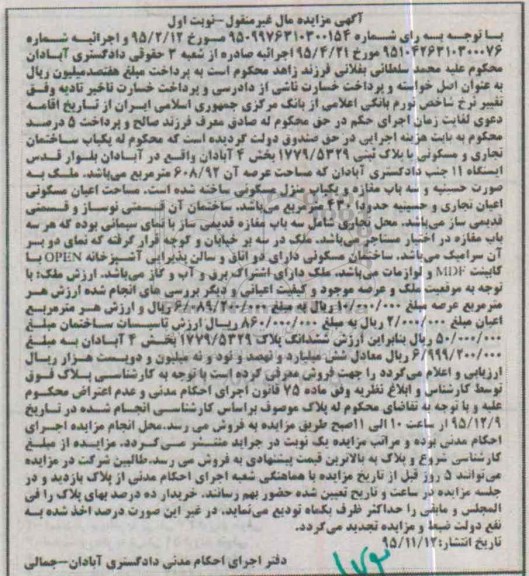 آگهی مزایده مال غیرمنقول-نوبت اول
با توجه به رای شماره ۹۵۰۹۹۷۶۳۱۰۳۰۰۱۵۴ مورخ ۹۵/۲/۱۲ و اجرائیه شماره
۹۵۱۰۴۲۶۳۱۰۳۰۰۰۷۶ مورخ ۹۵/۴/۲۱ اجرائیه صادره از شعبه ۳ حقوقی دادگستری آبادان
محکوم علیه محمد سلطانی بغلانی فرزند زاهد محکوم است به پرداخت مبلغ هفتصدمیلیون ریال
به عنوان اصل خواسته و پرداخت خسارت ناشی از دادرسی و پرداخت خسارت تاخیر تادیه وفق
تغییر نرخ شاخص تورم بانکی اعلامی از بانک مرکزی جمهوری اسلامی ایران از تاریخ اقامه
دعوی لغایت زمان اجرای حکم در حق محکوم له صادق معرف فرزند صالح و پرداخت ۵ درصد
محکوم به بابت هزینه اجرایی در حق صندوق دولت گردیده است که محکوم له یکباب ساختمان
تجاری و مسکونی با پلاک ثبتی ۱۷۷۹/۵۳۲۹ بخش ۴ آبادان واقع در آبادان بلوار قدس
ایستگاه ۱۱ جنب دادگستری آبادان که مساحت عرصه آن ۶۰۸/۹۲ مترمربع می‌باشد. ملک به
صورت حسینیه و سه باب مغازه و یکباب منزل مسکونی ساخته شده است. مساحت اعیان مسکونی
اعیان تجاری و حسینیه حدودا ۴۳۰ مترمربع می‌باشد. ساختمان آن قسمتی نوساز و قسمتی
قدیمی ساز می‌باشد. محل تجاری شامل سه باب مغازه قدیمی ساز با نمای سیمانی بوده که هر سه
باب مغازه در اختیار مستاجر می‌باشد. ملک در سه بر خیابان و کوچه قرار گرفته که نمای دو بر
آن سرامیک می‌باشد. ساختمان مسکونی دارای دو اتاق و سالن پذیرایی آشپزخانه OPEN با
کابینت MDF و لوازمات می‌باشد. ملک دارای اشتراک برق و آب و گاز می‌باشد. ارزش ملک: با
توجه به موقعیت ملک و عرصه موجود و کیفیت اعیانی و دیگر بررسی های انجام شده ارزش هر
مترمربع عرصه مبلغ ۱۰/۰۰۰/۰۰۰ ریال به مبلغ ۶/۰۸۹/۲۰۰/۰۰۰ ریال و ارزش هر مترمربع
اعیان مبلغ ۲/۰۰۰/۰۰۰ ریال به مبلغ ۸۶۰/۰۰۰/۰۰۰ ریال ارزش تاسیسات ساختمان مبلغ
۵۰/۰۰۰/۰۰۰ ریال بنابراین ارزش ششدانگ پلاک ۱۷۷۹/۵۳۲۹ بخش ۴ آبادان به مبلغ
۶/۹۹۹/۲۰۰/۰۰۰ ریال معادل شش میلیارد و نهصد و نود و نه میلیون و دویست هزار ریال
ارزیابی و اعلام می‌گردد را جهت فروش معرفی کرده است با توجه به کارشناسی پلاک فوق
توسط کارشناس و ابلاغ نظریه وفق ماده ۷۵ قانون اجرای احکام مدنی و عدم اعتراض محکوم
علیه و با توجه به تقاضای محکوم له پلاک موصوف براساس کارشناسی انجام شده در تاریخ
۹۵/۱۲/۹ از ساعت ۱۰ الی ۱۱صبح طریق مزایده به فروش می رسد.محل انجام مزایده اجرای
احکام مدنی بوده و مراتب مزایده یک نوبت در جراید منتشر می‌گردد. مزایده از مبلغ
کارشناسی شروع و پلاک به بالاترین قیمت پیشنهادی به فروش می رسد.طالبین شرکت در مزایده
می‌توانند ۵ روز قبل از تاریخ مزایده با هماهنگی شعبه اجرای احکام مدنی از پلاک بازدید و در
جلسه مزایده در ساعت و تاریخ تعیین شده حضور بهم رسانند. خریدار ده درصد بهای پلاک را فی
المجلس و مابقی را حداکثر ظرف یکماه تودیع می‌نماید، در غیر این صورت درصد اخذ شده به
نفع دولت ضبط و مزایده تجدید می‌گردد.
تاریخ انتشار:۹۵/۱۱/۱۲
دفتر اجرای احکام مدنی دادگستری آبادان-جمالی